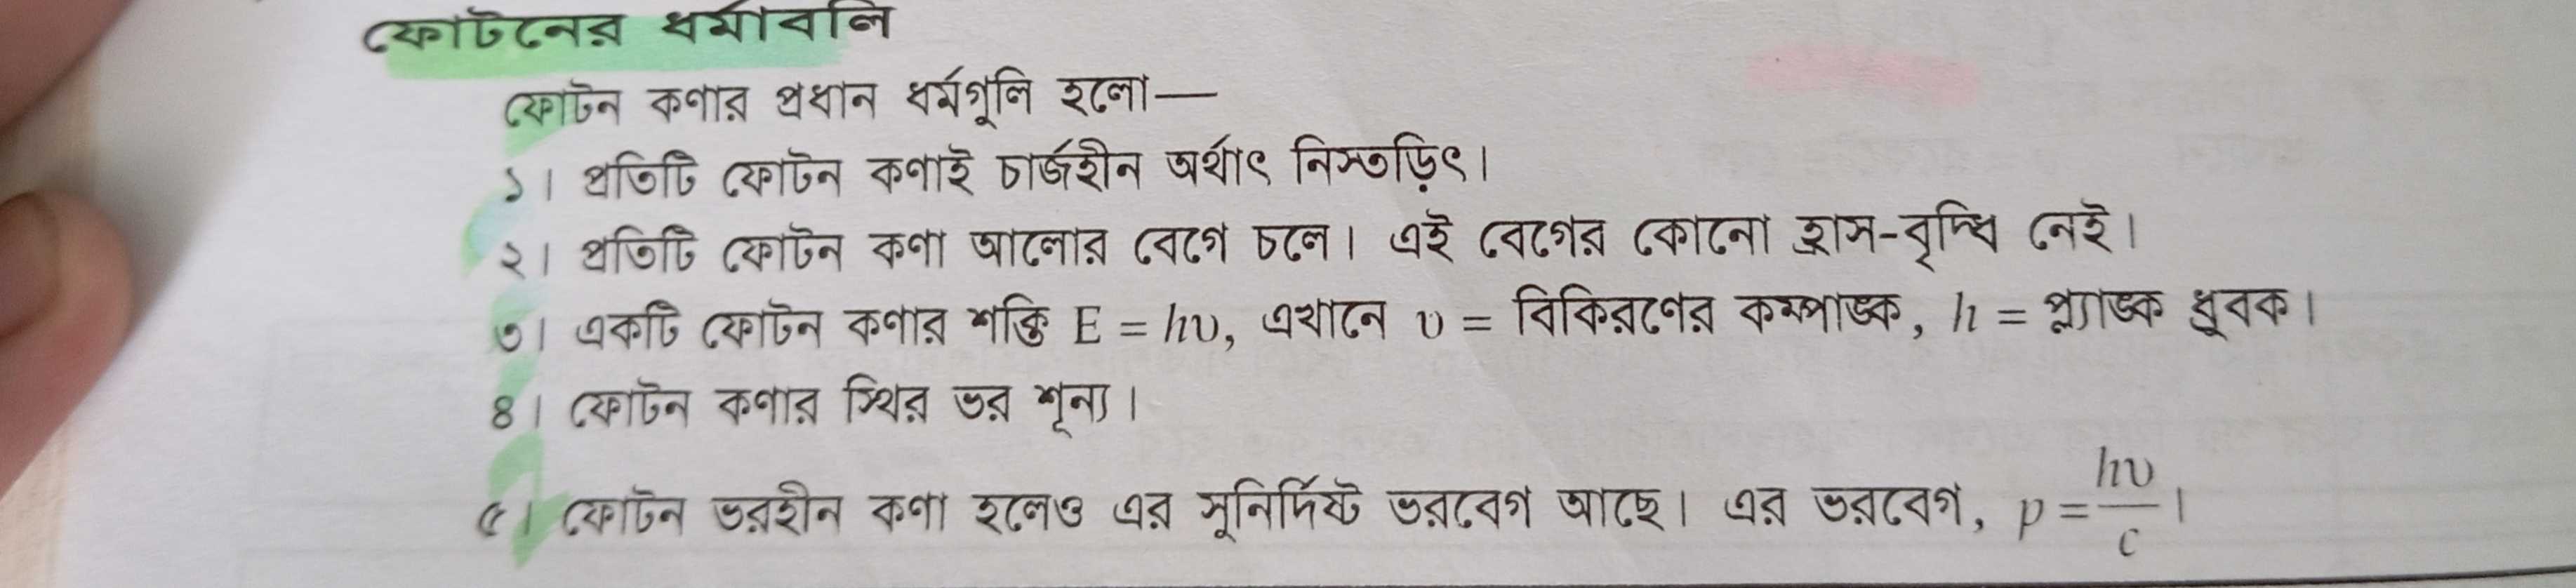 ফোটনের ধর্মাবলি
ফোটন কণার প্রধান ধর্মগুলি হলো—
১। প্রতিটি ফোটন কণাই চার্জহীন অর্থাৎ নিস্তড়িৎ।
২। প্রতিটি ফোটন কণা আলোর বেগে চলে। এই বেগের কোনো হ্রাস-বৃদ্ধি নেই।
৩। একটি ফোটন কণার শক্তি E = hυ, এখানে υ = বিকিরণের কম্পাঙ্ক, h = প্ল্যাঙ্ক ধ্রুবক।
৪। ফোটন কণার স্থির ভর শূন্য।
৫। ফোটন ভরহীন কণা হলেও এর সুনির্দিষ্ট ভরবেগ আছে। এর ভরবেগ, p = hυ/c।